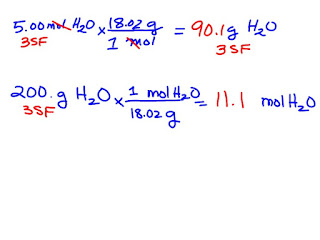 5.00 mol H₂O × 18.02 g / 1 mol = 90.1 g H₂O
3SF 3SF
200. g H₂O × 1 mol H₂O / 18.02 g = 11.1 mol H₂O
3SF